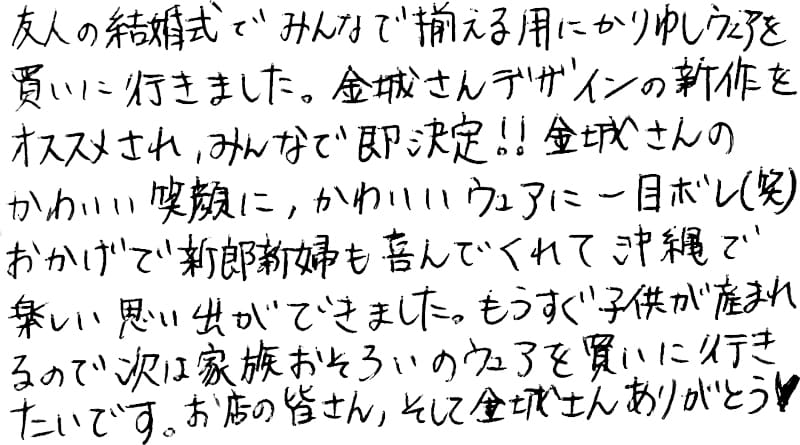 友人の結婚式でみんなで揃える用にかりゆしウェアを
買いに行きました。金城さんデザインの新作を
オススメされ,みんなで即決定!!金城さんの
かわいい笑顔に,かわいいウェアに一目ボレ(笑)
おかげで新郎新婦も喜んでくれて沖縄で
楽しい思い出ができました。もうすぐ子供が産まれ
るので次は家族おそろいのウェアを買いに行き
たいです。お店の皆さん,そして金城さんありがとう♥